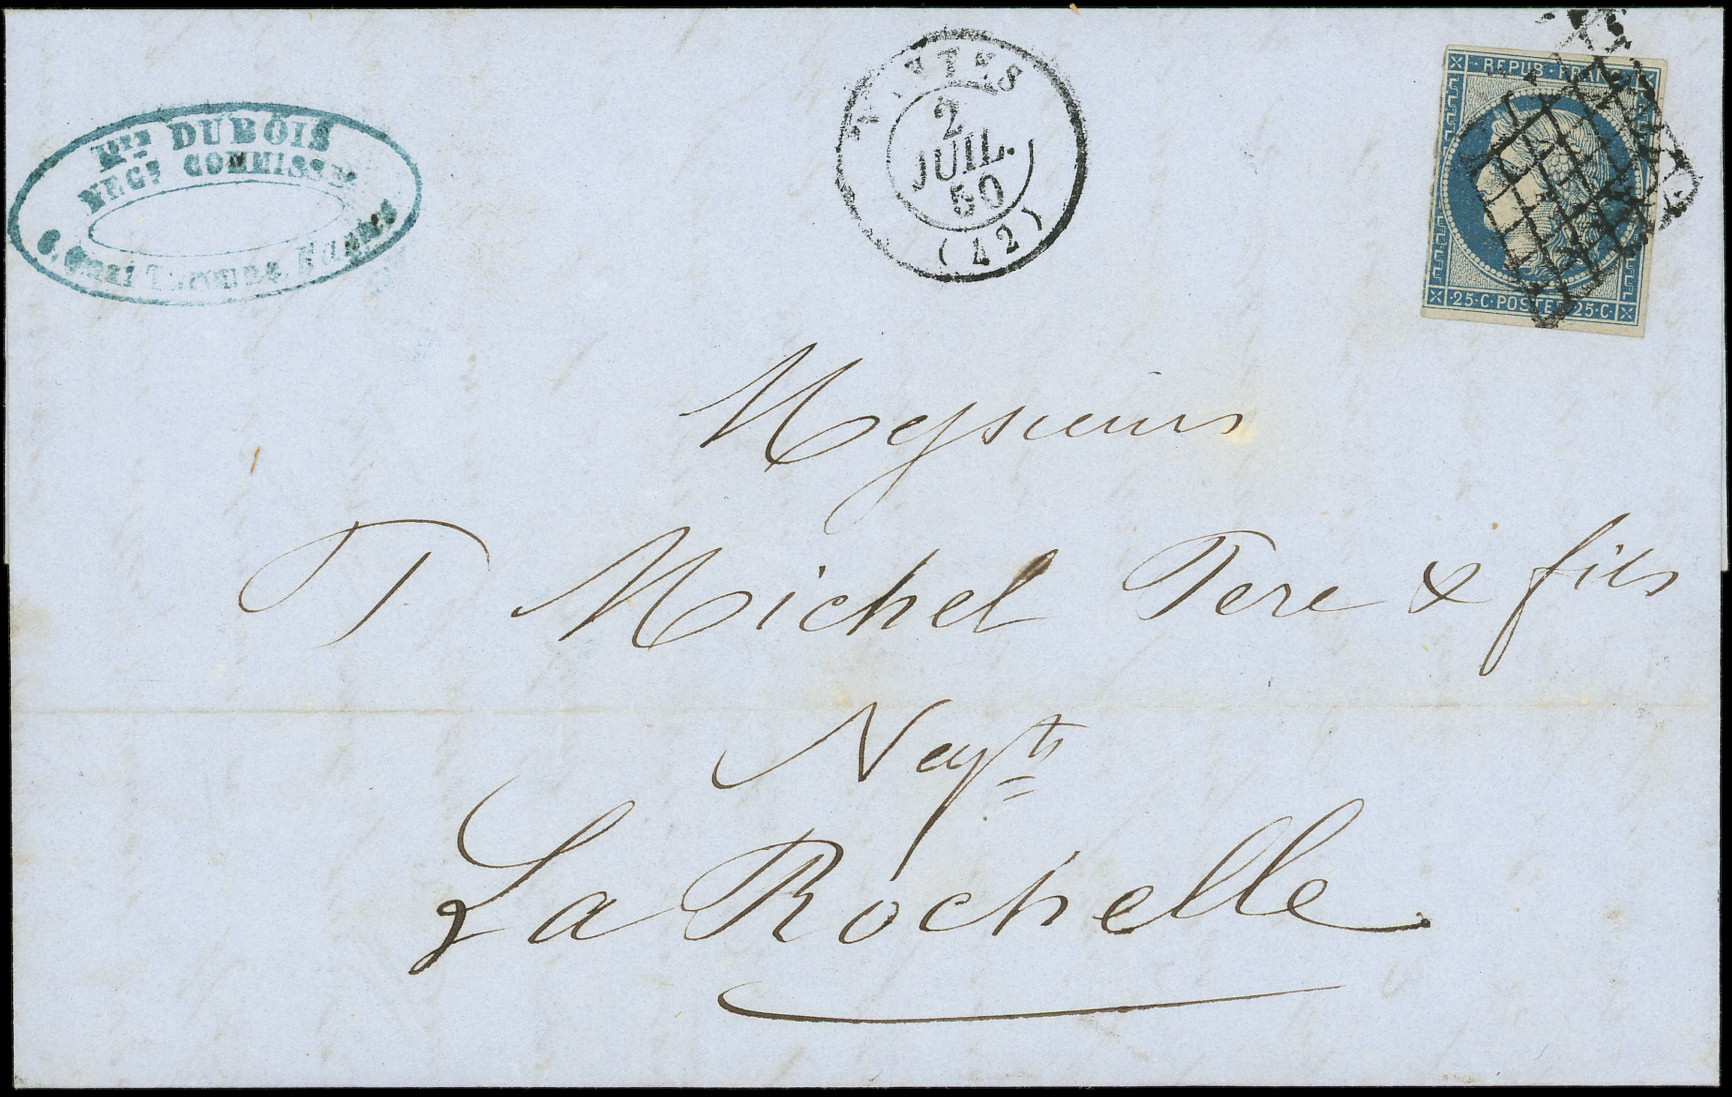 Mce DUBOIS
NEGt COMMISSre
6, Quai
NANTES
2
JUIL.
50
(42)
REPUB·FRANC
25·C·POSTES 25·C·
Messieurs
T Michel Pere & fils
Negts
La Rochelle